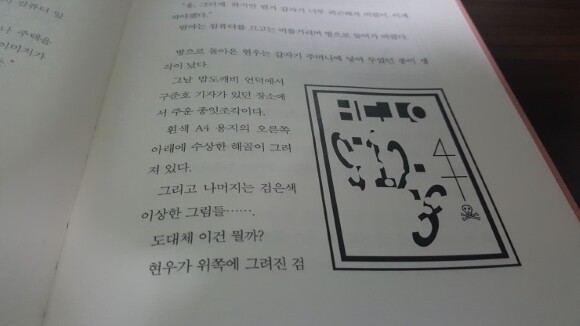 컴퓨터 일
나 주택을
이미지가
."
파야겠다."
엄마는 컴퓨터를 끄고는 비틀거리며 방으로 들어가 버렸다.
방으로 돌아온 현우는 갑자기 주머니에 넣어 두었던 종이 생
각이 났다.
그날 밤도깨비 언덕에서
구준호 기자가 있던 장소에
서 주운 종잇조각이다.
흰색 A4 용지의 오른쪽
아래에 수상한 해골이 그려
져 있다.
그리고 나머지는 검은색
이상한 그림들…….
도대체 이건 뭘까?
현우가 위쪽에 그려진 검